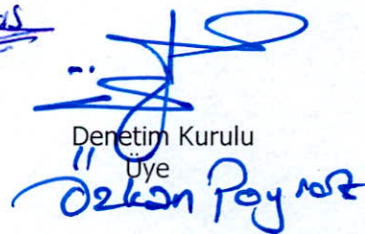 Denetim Kurulu
Üye
Özkan Poyraz